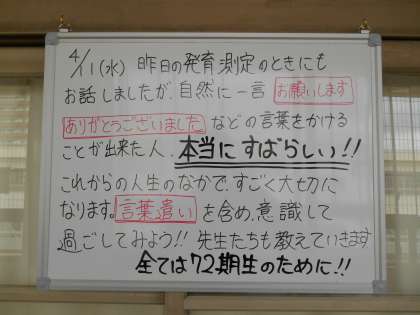 4/11(水) 昨日の発育測定のときにも
お話しましたが、自然に一言 お願いします
ありがとうございました などの言葉をかける
ことが出来た人、本当にすばらしい!!
これからの人生のなかで、すごく大切に
なります。言葉遣い を含め、意識して
過ごしてみよう!! 先生たちも教えていきます
全ては72期生のために!!